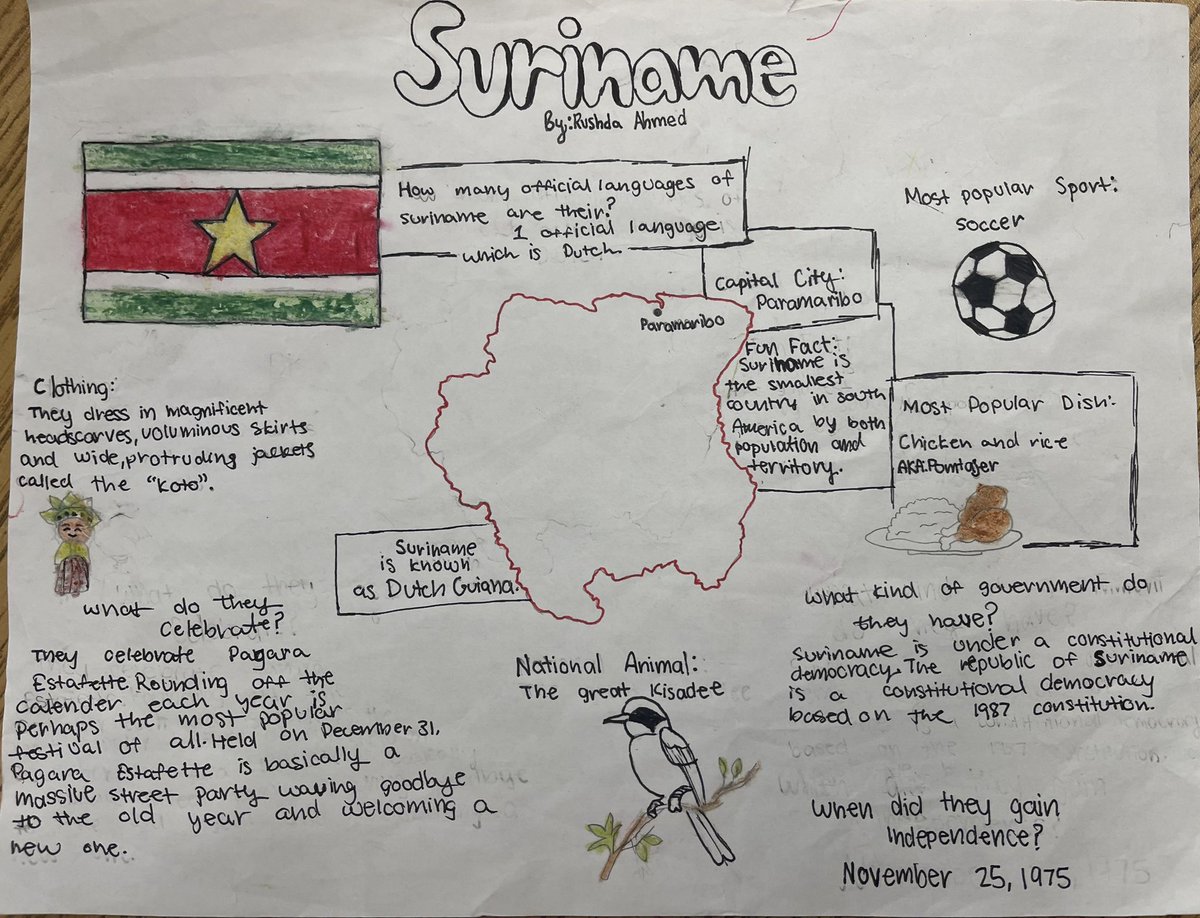 Suriname
By: Rushda Ahmed
How many official languages of
suriname are their?
1 official language
which is Dutch
Capital City:
Paramaribo
Most popular Sport:
soccer
Paramaribo
Fun Fact:
Suriname is
the smallest
country in south
America by both
population and
territory.
Most Popular Dish:
Chicken and rice
AKA.Pomtajer
Clothing:
They dress in magnificent
headscarves, voluminous skirts
and wide, protruding jackets
called the "Koto".
Suriname
is known
as Dutch Guiana.
What do they
celebrate?
They celebrate Pagara
Estafette Rounding off the
calender each year is
Perhaps the most popular
festival of all. Held on December 31,
Pagara Estafette is basically a
massive street party waving goodbye
to the old year and welcoming a
new one.
National Animal:
The great Kisadee
What kind of government do
they have?
Suriname is under a constitutional
democracy. The republic of Suriname
is a constitutional democracy
based on the 1987 constitution.
When did they gain
Independence?
November 25, 1975